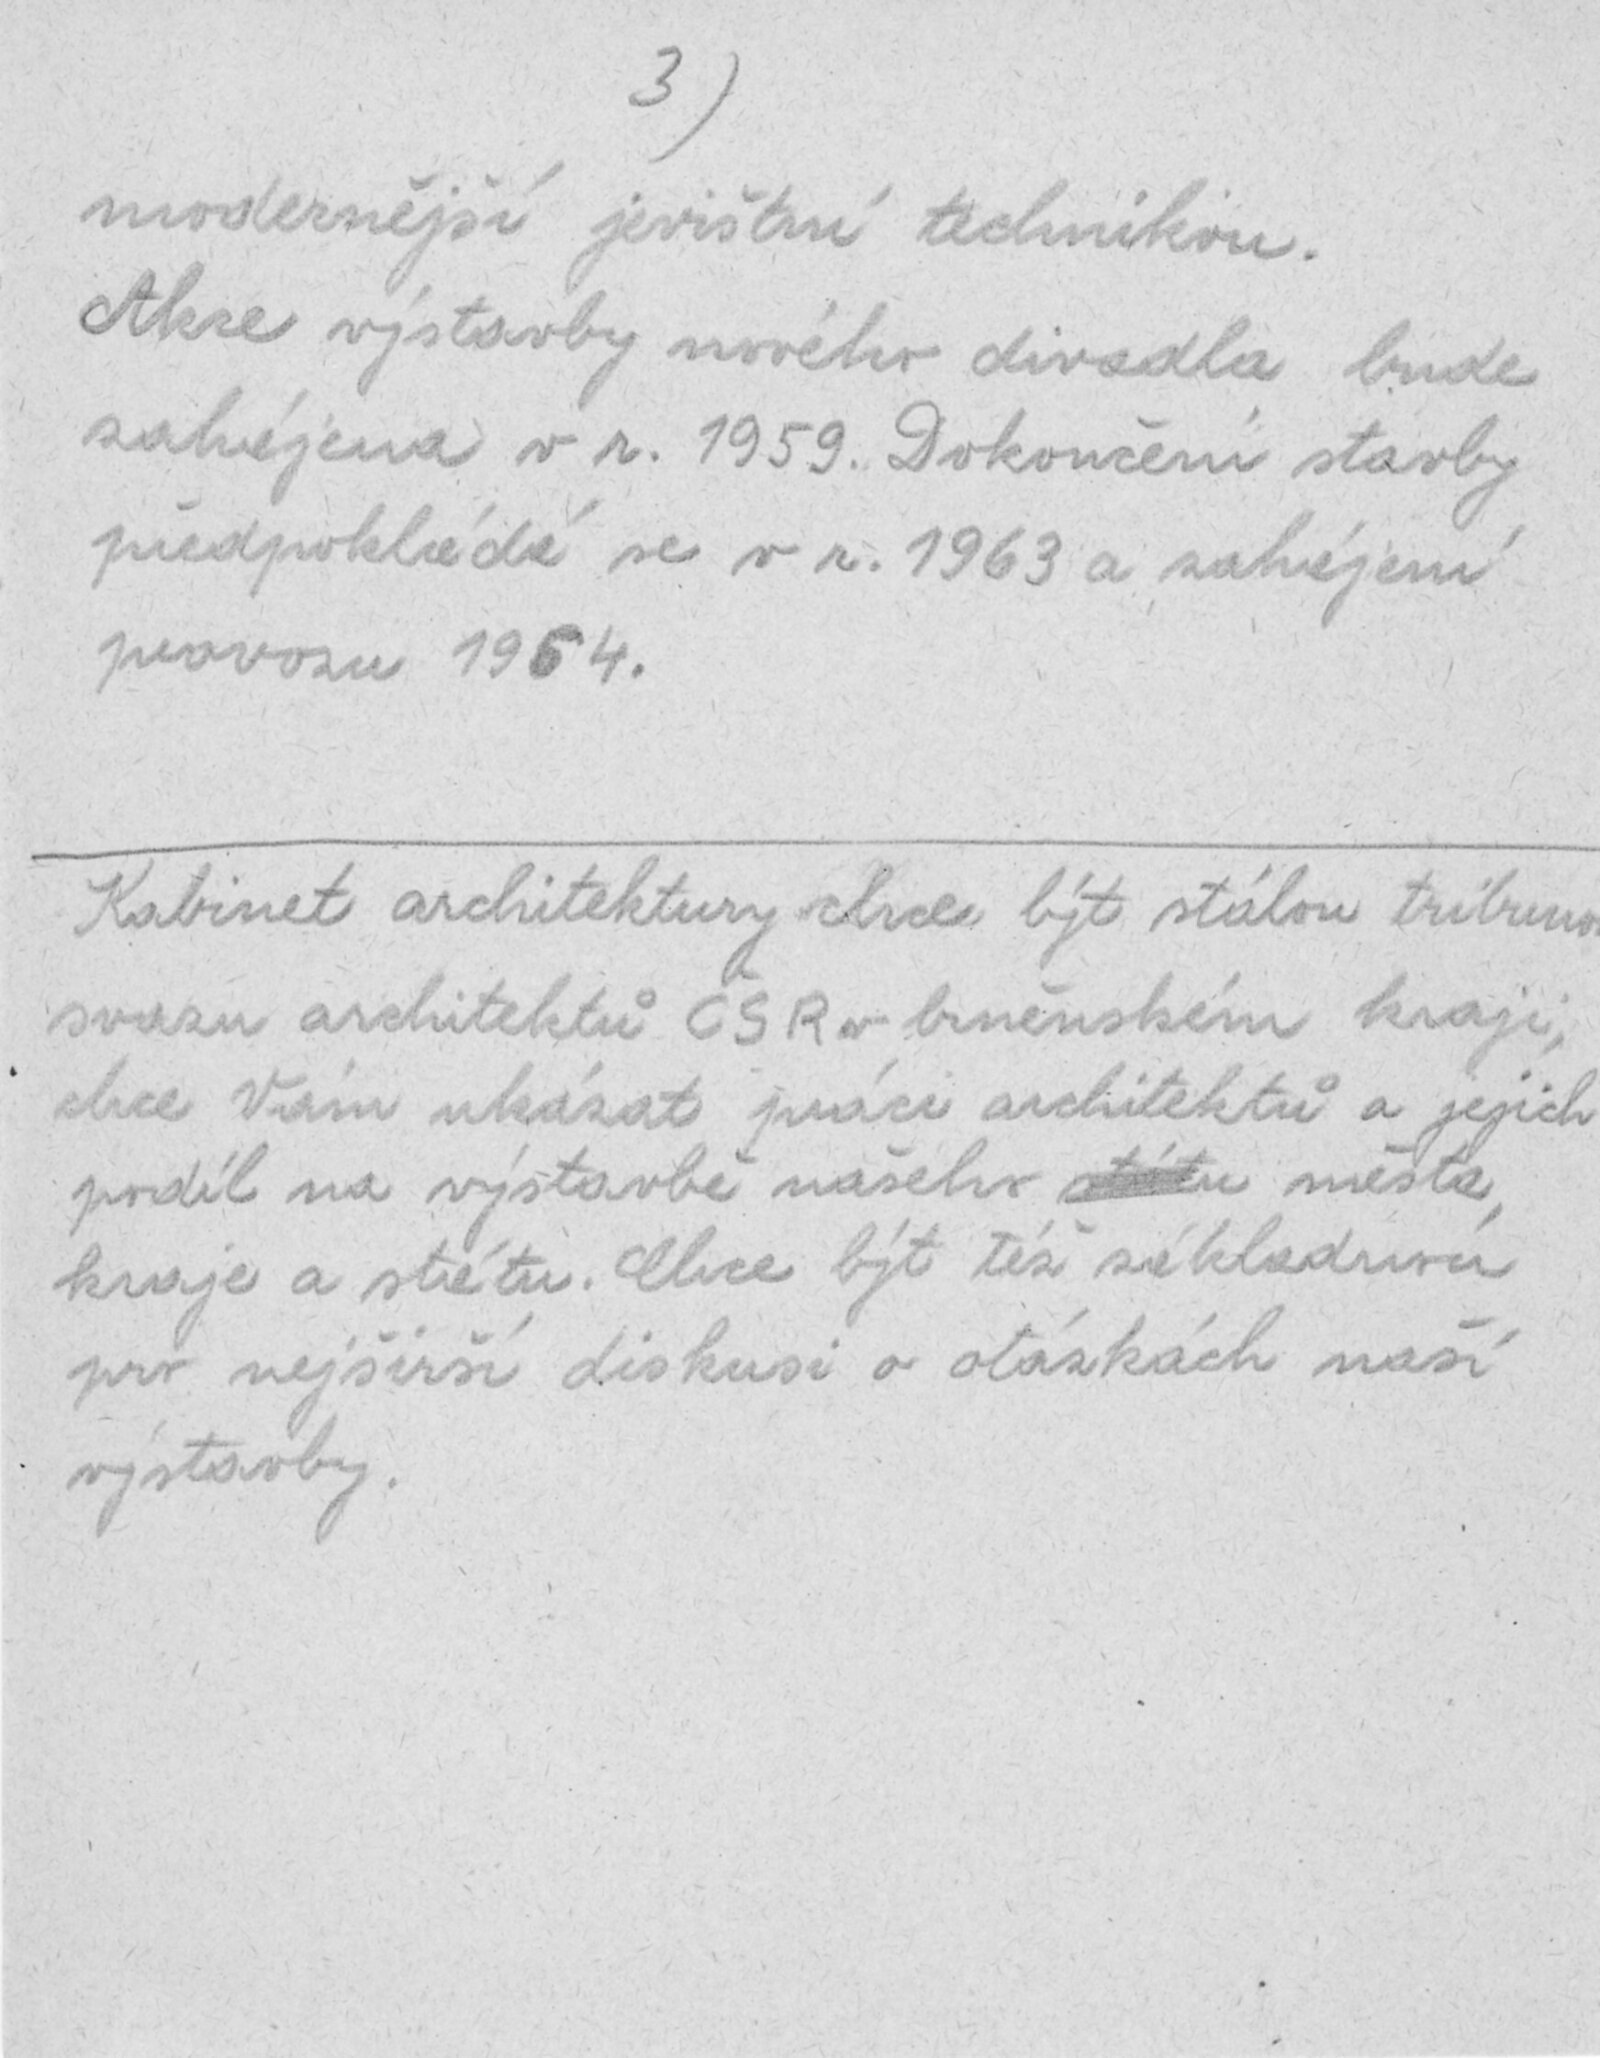 3)
modernější jevištní technikou.
Akce výstavby nového divadla bude
zahájena v r. 1959. Dokončení stavby
předpokládá se v r. 1963 a zahájení
provozu 1964.
Kabinet architektury chce být stálou tribunou
svazu architektů ČSR v brněnském kraji,
chce Vám ukázat práci architektů a jejich
podíl na výstavbě našeho státu města,
kraje a státu. Chce být též základnou
pro nejširší diskusi o otázkách naší
výstavby.